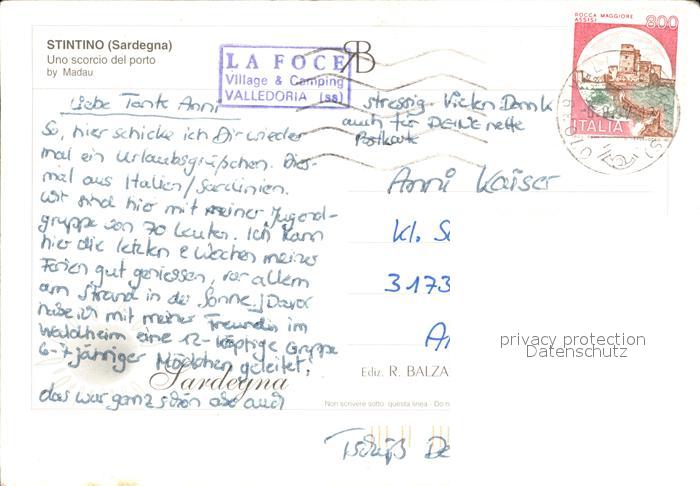 STINTINO (Sardegna)
Uno scorcio del porto
by Madau
LA FOCE
Village & Camping
VALLEDORIA (ss)
RB
ROCCA MAGGIORE
ASSISI
800
ITALIA
Liebe Tante Anni
So, hier schicke ich Dir wieder
mal ein Urlaubsgrüßchen. Dies-
mal aus Italien/Sardinien.
Wir sind hier mit meiner Jugend-
gruppe von 70 Leuten. Ich kann
hier die letzten 2 Wochen meiner
Ferien gut geniessen, vor allem
am Strand in der Sonne! Davor
habe ich mit meiner Freundin im
Waldheim eine 12-köpfige Gruppe
6-7jähriger Mädchen geleitet;
das war ganz schön aber auch
stressig. Vielen Dank
auch für DEINE nette
Postkarte
Tschüß De
Anni Kaiser
Kl. S
3173
A
Sardegna
Ediz. R. BALZA
Non scrivere sotto questa linea - Do n
privacy protection
Datenschutz